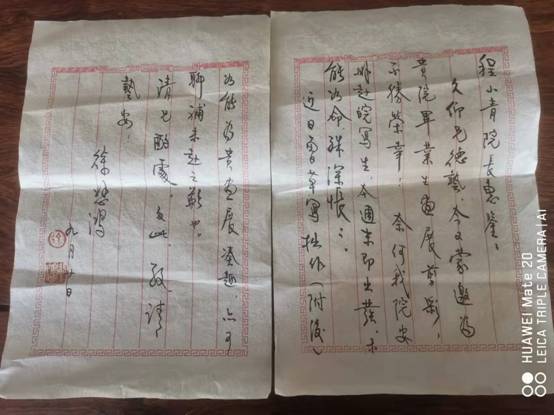 程小青院长惠鉴：
久仰兄德艺，今又蒙邀为
贵院毕业生画展剪彩，
不胜荣幸！奈何我院安
排赴皖写生，本通东即出发，未
能从命，殊深怅之。
近日曾草写拙作（附后）
如能为贵画展凑趣，亦可
聊补未赴之歉也。
请兄酌处。匆此，敬请
艺安！
徐悲鸿
九月廿日
HUAWEI Mate 20
LEICA TRIPLE CAMERA | AI